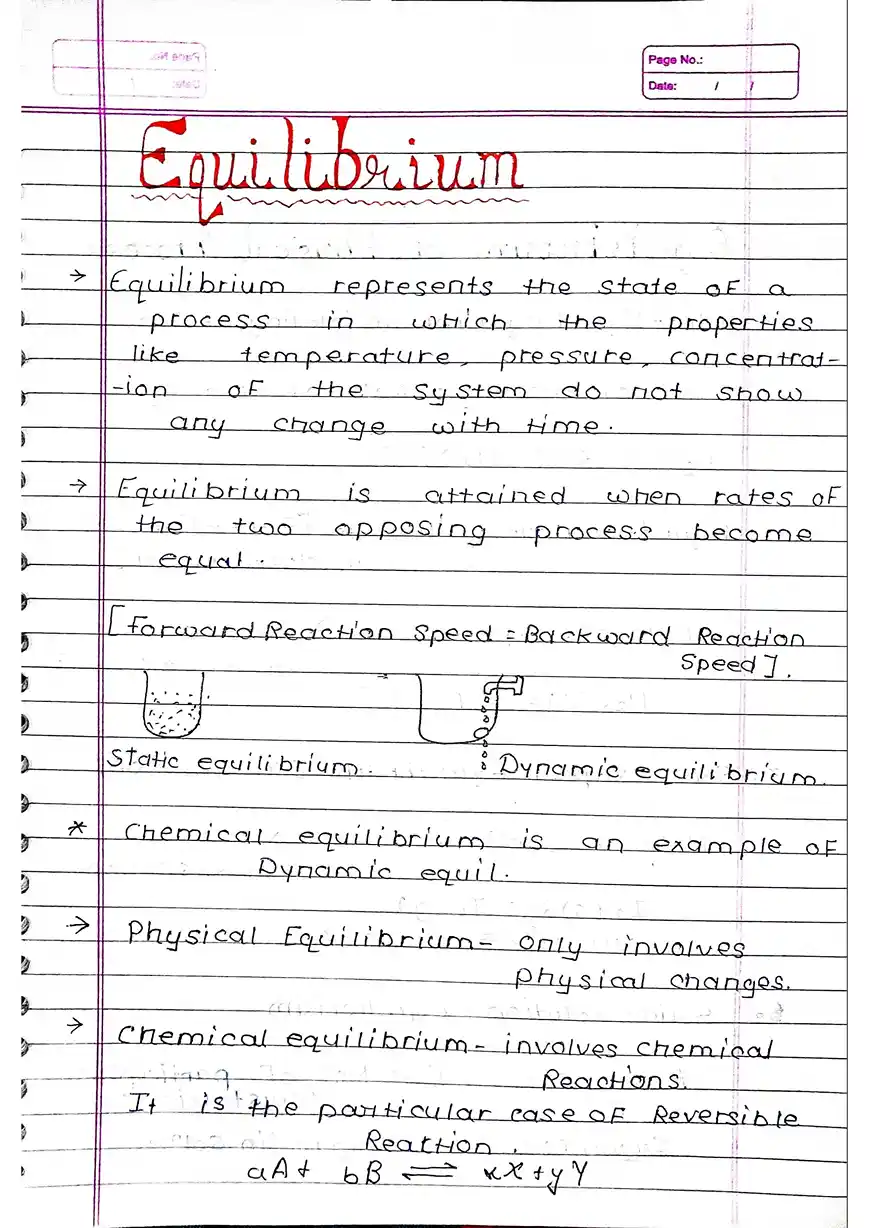 Page No.:
Date: / /
Equilibrium
→ Equilibrium represents the state of a
process in which the properties
like temperature, pressure, concentrat-
-ion of the system do not show
any change with time.
→ Equilibrium is attained when rates of
the two opposing process become
equal.
[Forward Reaction Speed = Backward Reaction
Speed].
Static equilibrium.
Dynamic equilibrium.
* Chemical equilibrium is an example of
Dynamic equil.
→ Physical Equilibrium - only involves
physical changes.
→ Chemical equilibrium - involves chemical
Reactions.
It is the particular case of Reversible
Reaction.
aA + bB ⇌ xX + yY